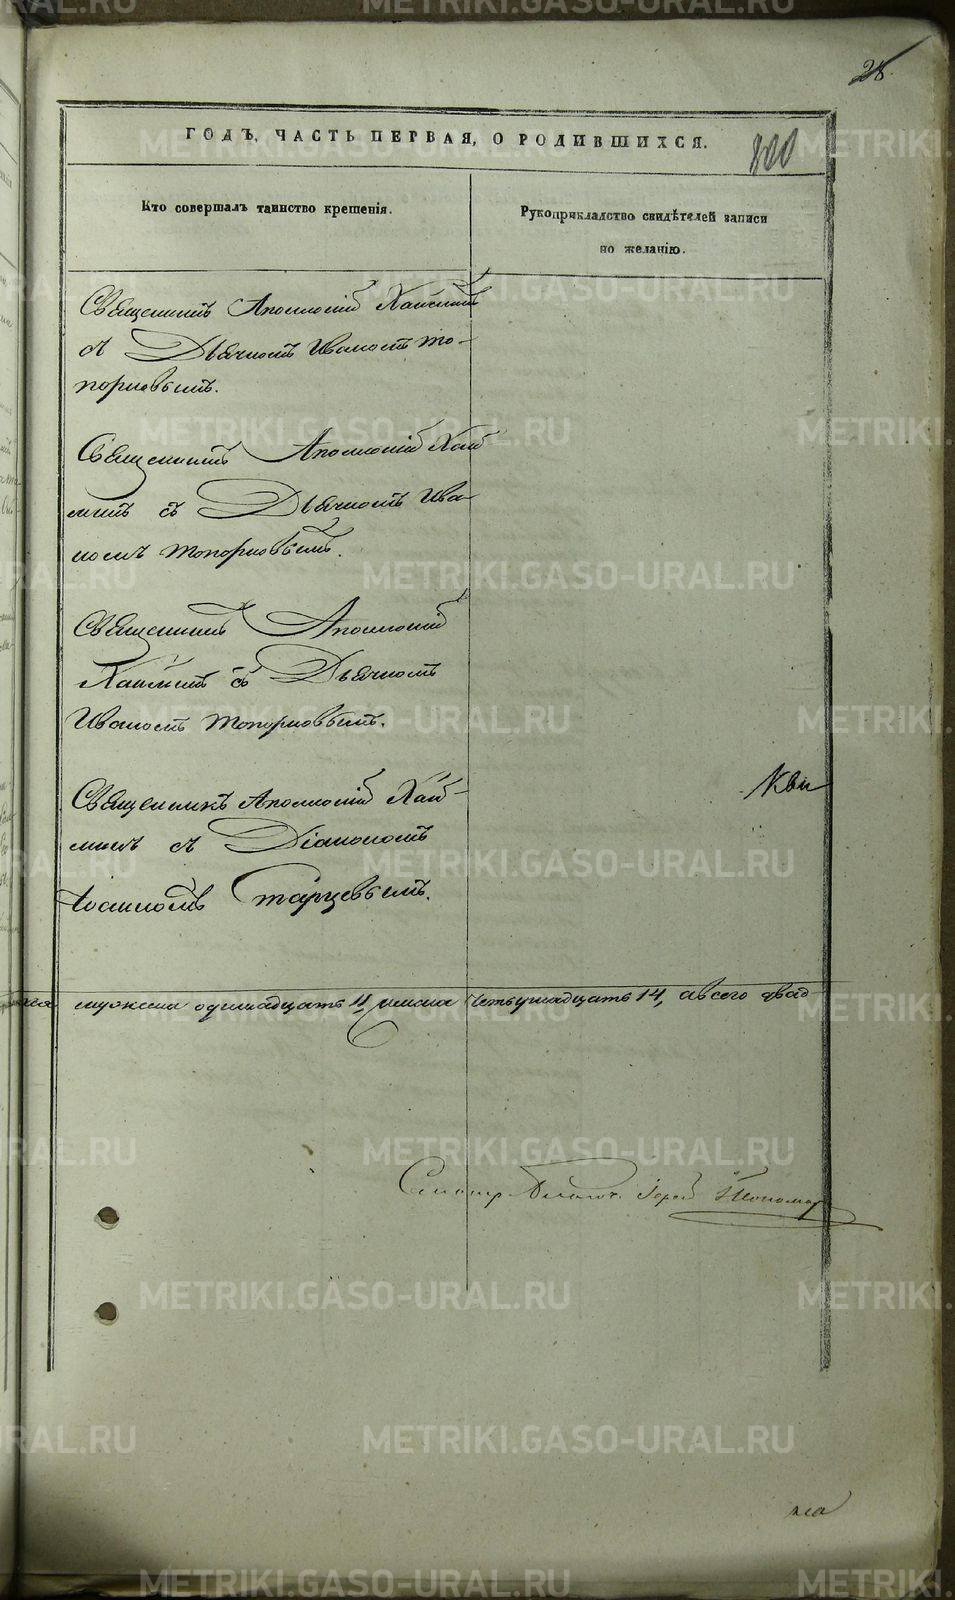 28.
ГОДЪ, ЧАСТЬ ПЕРВАЯ, О РОДИВШИХСЯ.
200
Кто совершалъ таинство крещенія.
Рукоприкладство свидѣтелей записи
по желанію.
Священникъ Аполлоній
съ Дьячкомъ Иваномъ То-
порковымъ.
Священникъ Аполлоній Хай
минъ съ Дьячкомъ Ива-
номъ Топорковымъ.
Священникъ Аполлоній
Хайминъ съ Дьячкомъ
Иваномъ Топорковымъ.
Священникъ Аполлоній Хай-
минъ съ Діакономъ
Іоанномъ Старцевымъ.
одиннадцать 11, четырнадцать 14, а всего двад
Іерей
METRIKI.GASO-URAL.RU